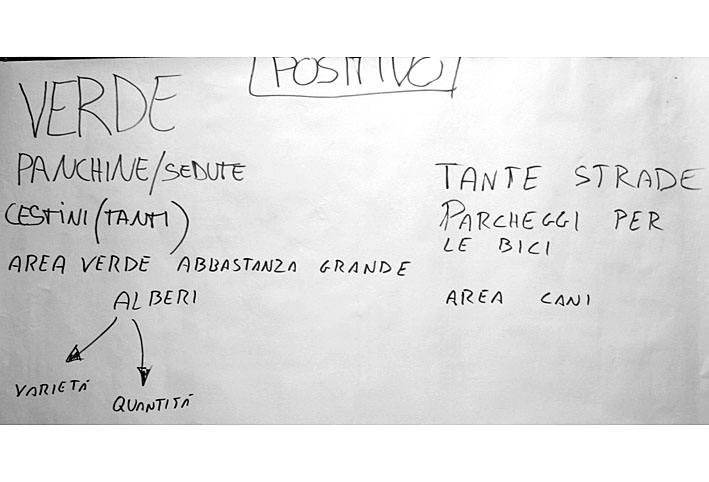 POSITIVO
VERDE
PANCHINE/SEDUTE
CESTINI (TANTI)
AREA VERDE ABBASTANZA GRANDE
ALBERI
VARIETÁ
QUANTITÁ
TANTE STRADE
PARCHEGGI PER
LE BICI
AREA CANI